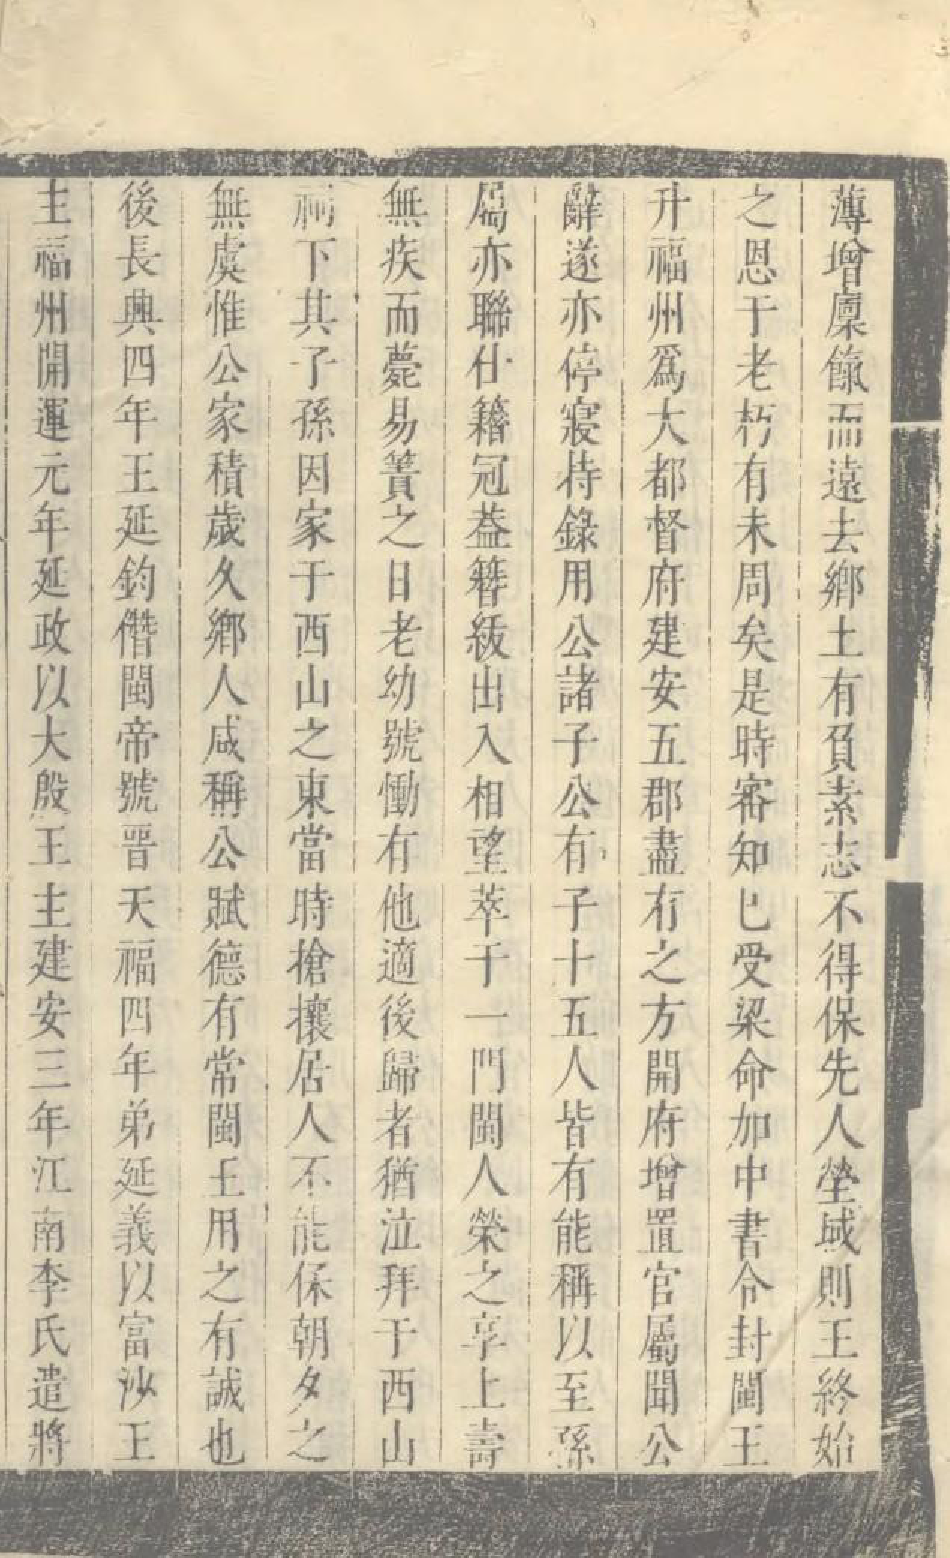 薄增廩餼而遠去鄉土有負素志不得保先人塋域則王終始
之恩于老朽有未周矣是時審知已受梁命加中書令封閩王
升福州爲大都督府建安五郡盡有之方開府增置官屬聞公
辭遂亦停寢持錄用公諸子公有子十五人皆有能稱以至孫
屬亦聯仕籍冠葢簪紱出入相望萃于一門閩人榮之享上壽
無疾而薨易簀之日老幼號慟有他適後歸者猶泣拜于西山
祠下其子孫因家于西山之東當時槍攘居人不能保朝夕之
無虞惟公家積歲久鄉人咸稱公賦德有常閩王用之有誠也
後長興四年王延鈞僭閩帝號晉天福四年弟延義以富沙王
主福州開運元年延政以大殷王主建安三年江南李氏遣將